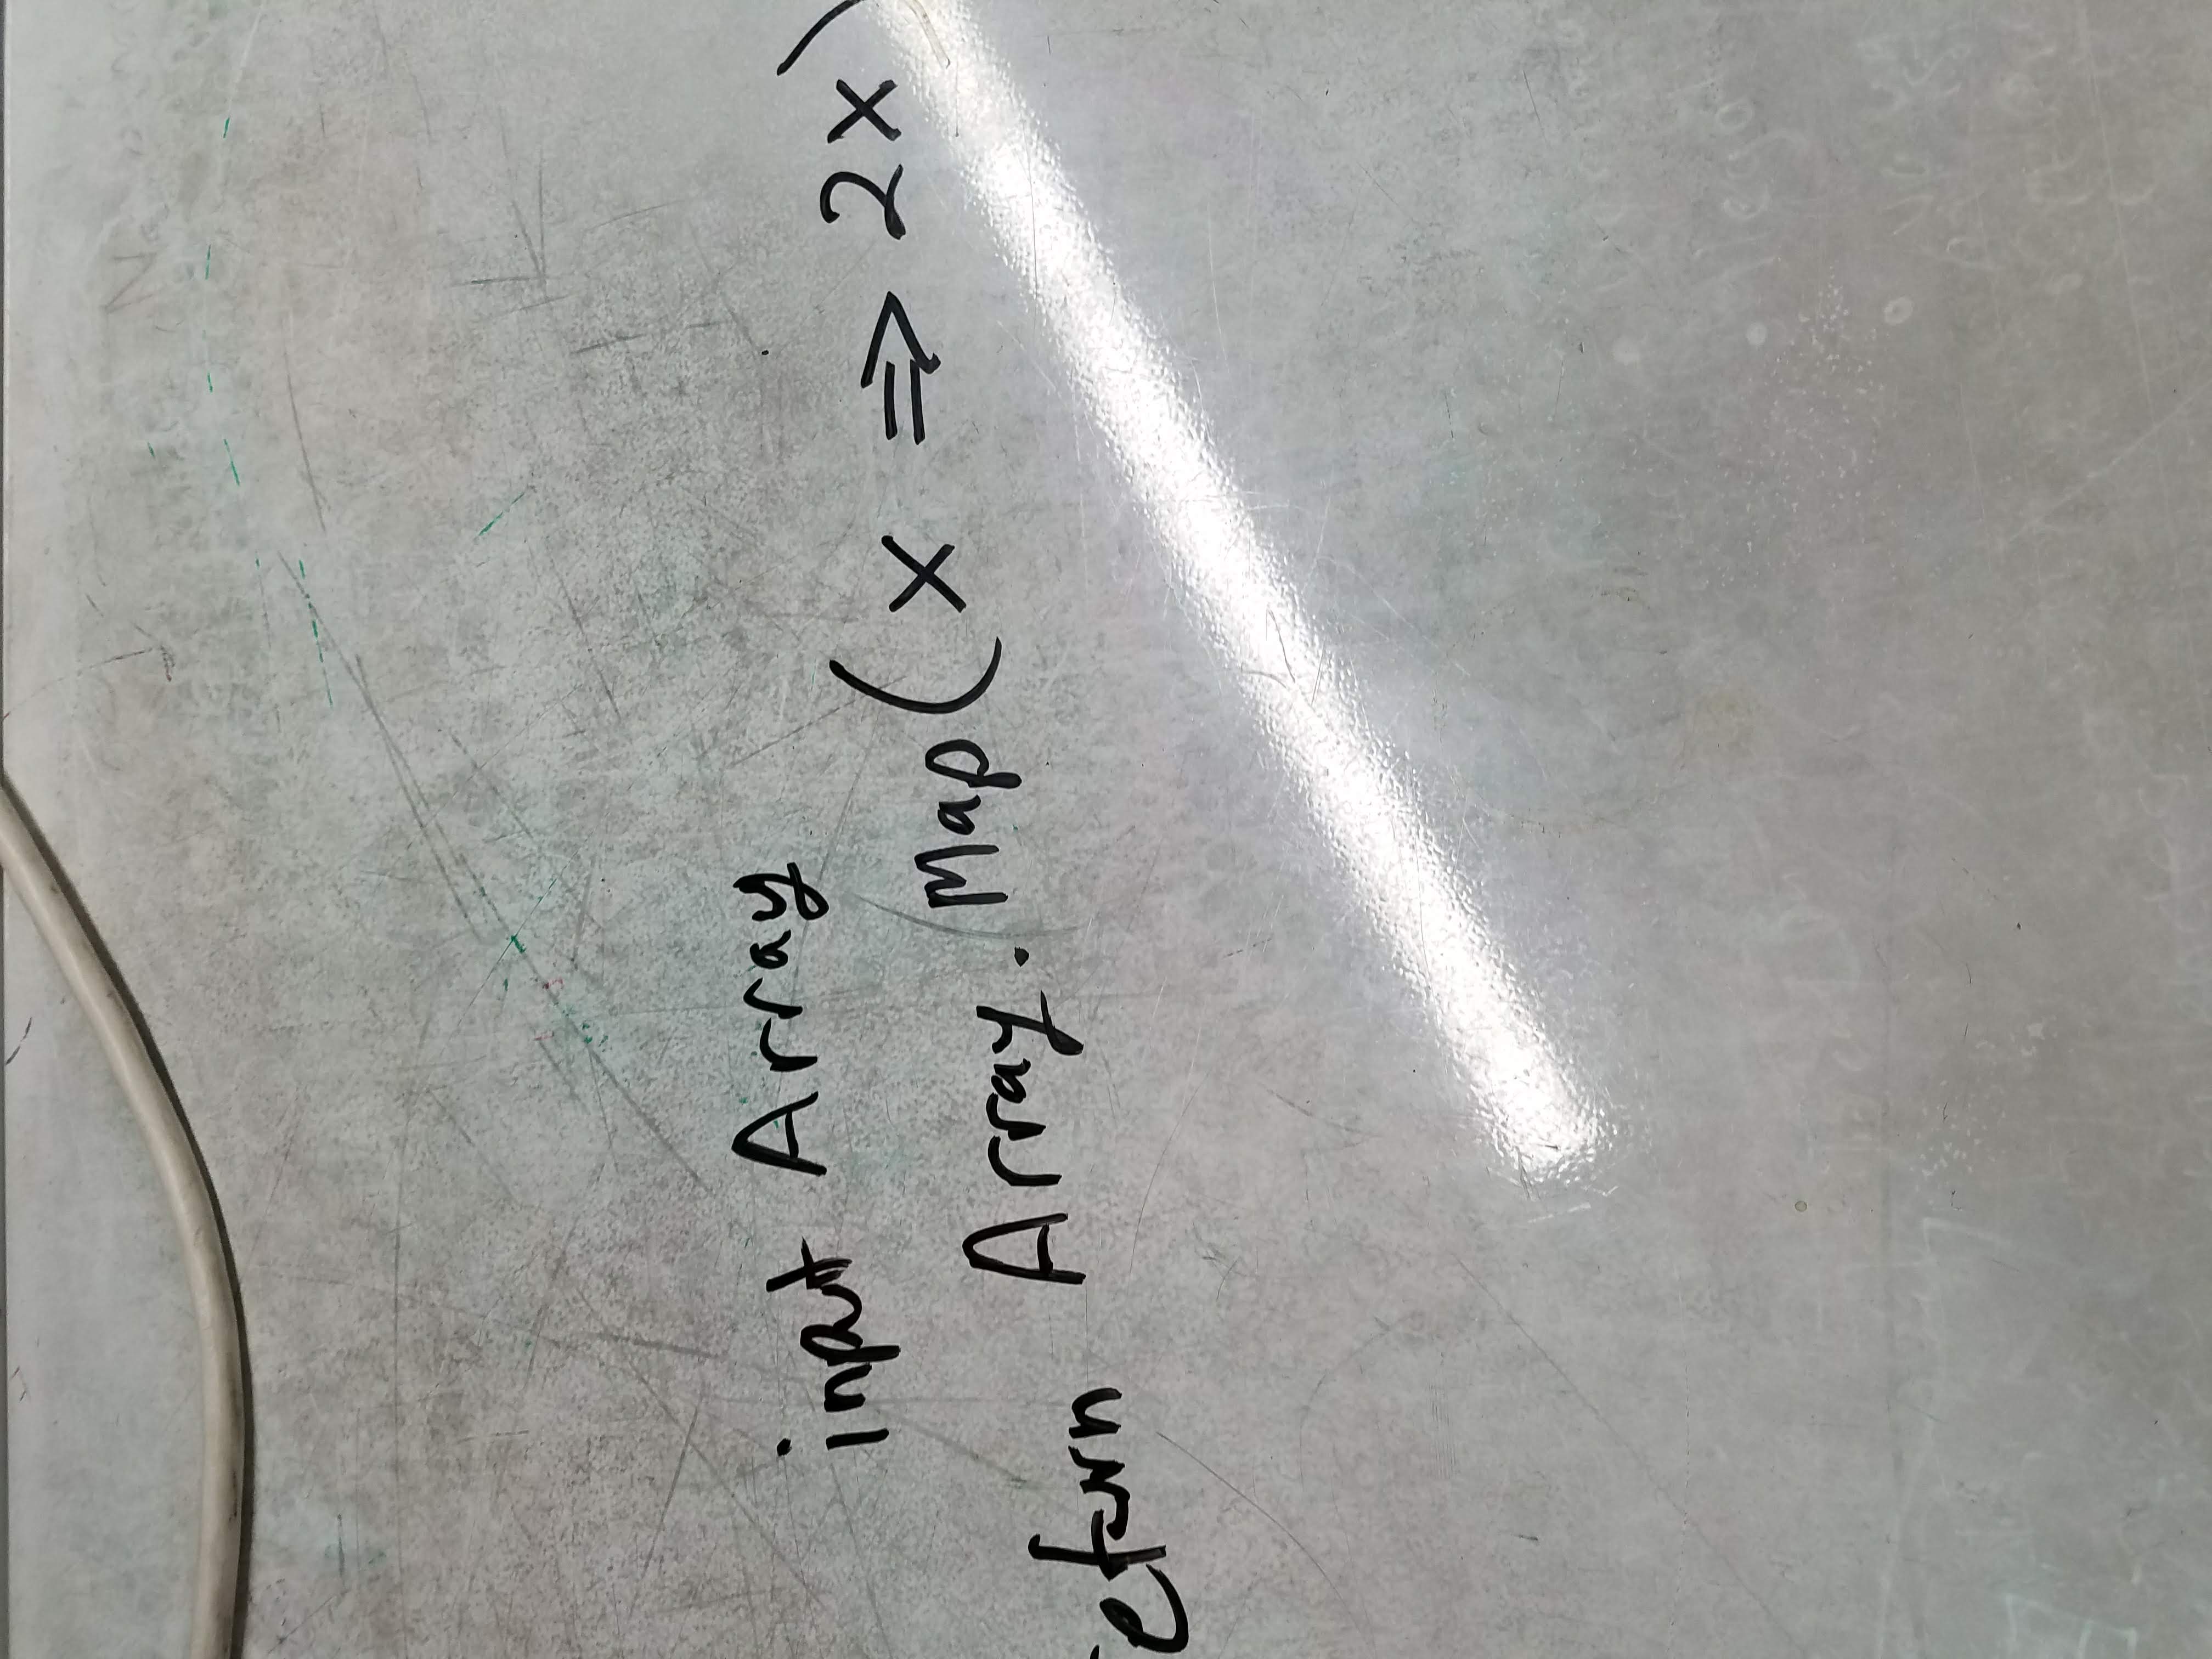 input Array
return Array.Map(x => 2x)